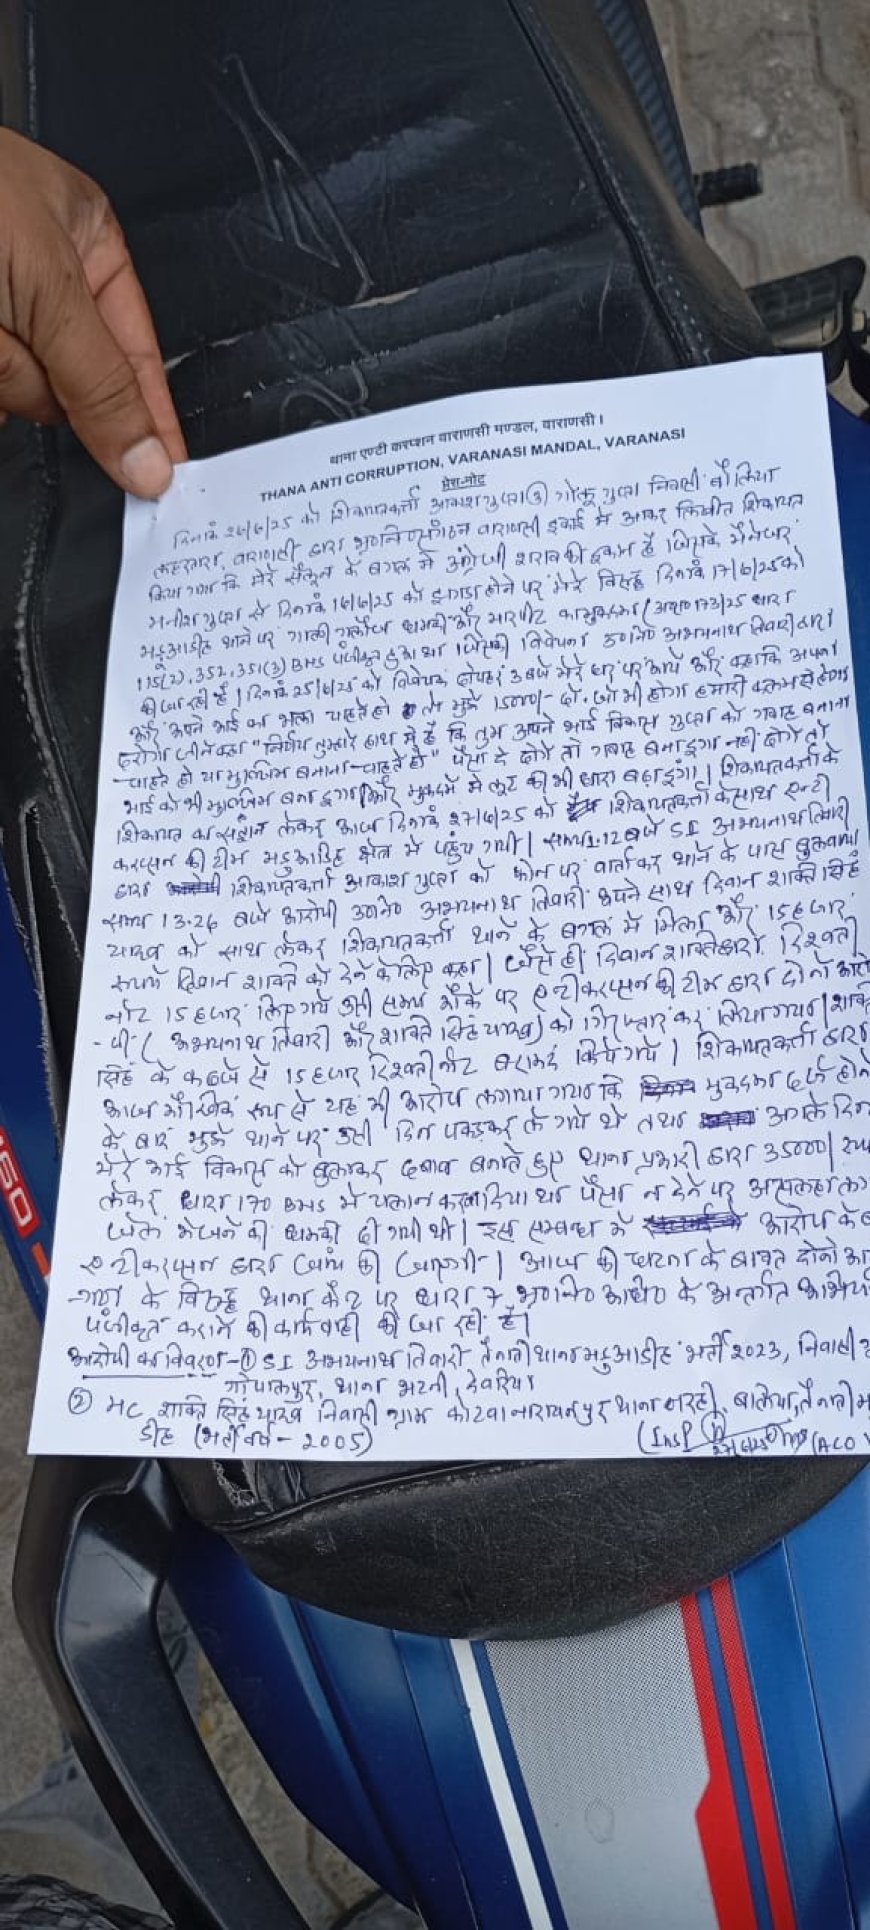 थाना एण्टी करप्शन वाराणसी मण्डल, वाराणसी।
THANA ANTI CORRUPTION, VARANASI MANDAL, VARANASI
प्रेस-नोट
दिनांक 26/6/25 को शिकायतकर्ता आकाश गुप्ता गोकू गुप्ता निवासी बौलिया
लहरतारा, वाराणसी द्वारा भ्र०नि०संगठन वाराणसी इकाई में आकर लिखीत शिकायत
किया गया कि मेरे सैलून के बगल में अंग्रेजी शराब की दुकान है जिसके मैनेजर
मनीश गुप्ता से दिनांक 16/6/25 को झगडा होने पर मेरे विरुद्ध दिनांक 17/6/25 को
मडुआडीह थाने पर गाली गलौज धमकी और मारपीट का मुकदमा (अ०स० 173/25 धारा
115(2), 352, 351(3) BNS पंजीकृत हुआ था जिसकी विवेचना उ०नि० अभयनाथ तिवारी द्वारा
की जा रही है। दिनांक 25/6/25 को विवेचक दोपहर 3 बजे मेरे घर पर आये और कहा कि अपना
और अपने भाई का भला चाहते हो तो मुझे 15000/- दो. जो भी होगा हमारी कलम से होगा
दरोगा जी ने कहा "निर्णय तुम्हारे हाथ में है कि तुम अपने भाई विकास गुप्ता को गवाह बनाना
चाहते हो या मुल्जिम बनाना चाहते हो" पैसा दे दोगे तो गवाह बना दूंगा नहीं दोगे तो
भाई को भी मुल्जिम बना दूंगा और मुकदमें में लूट की भी धारा बढ़ा दूंगा। शिकायतकर्ता के
शिकायत का संज्ञान लेकर आज दिनांक 27/6/25 को शिकायतकर्ता के साथ एन्टी
करप्सन की टीम मडुआडिह क्षेत्र में पहुंच गयी। समय 1.12 बजे SI अभयनाथ तिवारी
द्वारा शिकायतकर्ता आकाश गुप्ता को फोन पर वार्ता कर थाने के पास बुलवाया
समय 13.26 बजे आरोपी उ०नि० अभयनाथ तिवारी अपने साथ दिवान शक्ति सिंह
यादव को साथ लेकर शिकायतकर्ता थाने के बगल में मिला और 15 हजार
रूपये दिवान शक्ति को देने के लिए कहा। जैसे ही दिवान शक्ति द्वारा रिश्वती
नोट 15 हजार लिए गये उसी समय मौके पर एन्टी करप्सन की टीम द्वारा दोनों आरो
-पी (अभयनाथ तिवारी और शक्ति सिंह यादव) को गिरफ्तार कर लिया गया। शक्ति
सिंह के कब्जे से 15 हजार रिश्वती नोट बरामद किये गये। शिकायतकर्ता द्वारा
आज मौखिक रूप से यह भी आरोप लगाया गया कि मुकदमा दर्ज होने
के बाद मुझे थाने पर उसी दिन पकड़कर ले गये थे तथा अगले दिन
मेरे भाई विकास को बुलाकर दबाव बनाते हुए थाना प्रभारी द्वारा 35000/
लेकर धारा 170 BNS में चलान कर दिया था पैसा न देने पर असलहा लगा
जेल भेजने की धमकी दी गयी थी। इस सम्बन्ध में आरोप के
एन्टी करप्सन द्वारा जांच की जाएगी। आज की घटना के बावत दोनों आ
-गण के विरुद्ध थाना कैंट पर धारा 7 भ्र०नि०अधि० के अन्तर्गत अभियो
पंजीकृत कराने की कार्यवाही की जा रही है।
आरोपी का विवरण - (1) SI अभयनाथ तिवारी तैनाती थाना मडुआडीह भर्ती 2023, निवासी
गोपालपुर, थाना भटनी, देवरिया
(2) HC शक्ति सिंह यादव निवासी ग्राम कोटवा नारायनपुर थाना नरही, बलिया, तैनाती म
डीह (भर्ती वर्ष - 2005)
(Insp
27/6/25
(ACO
60